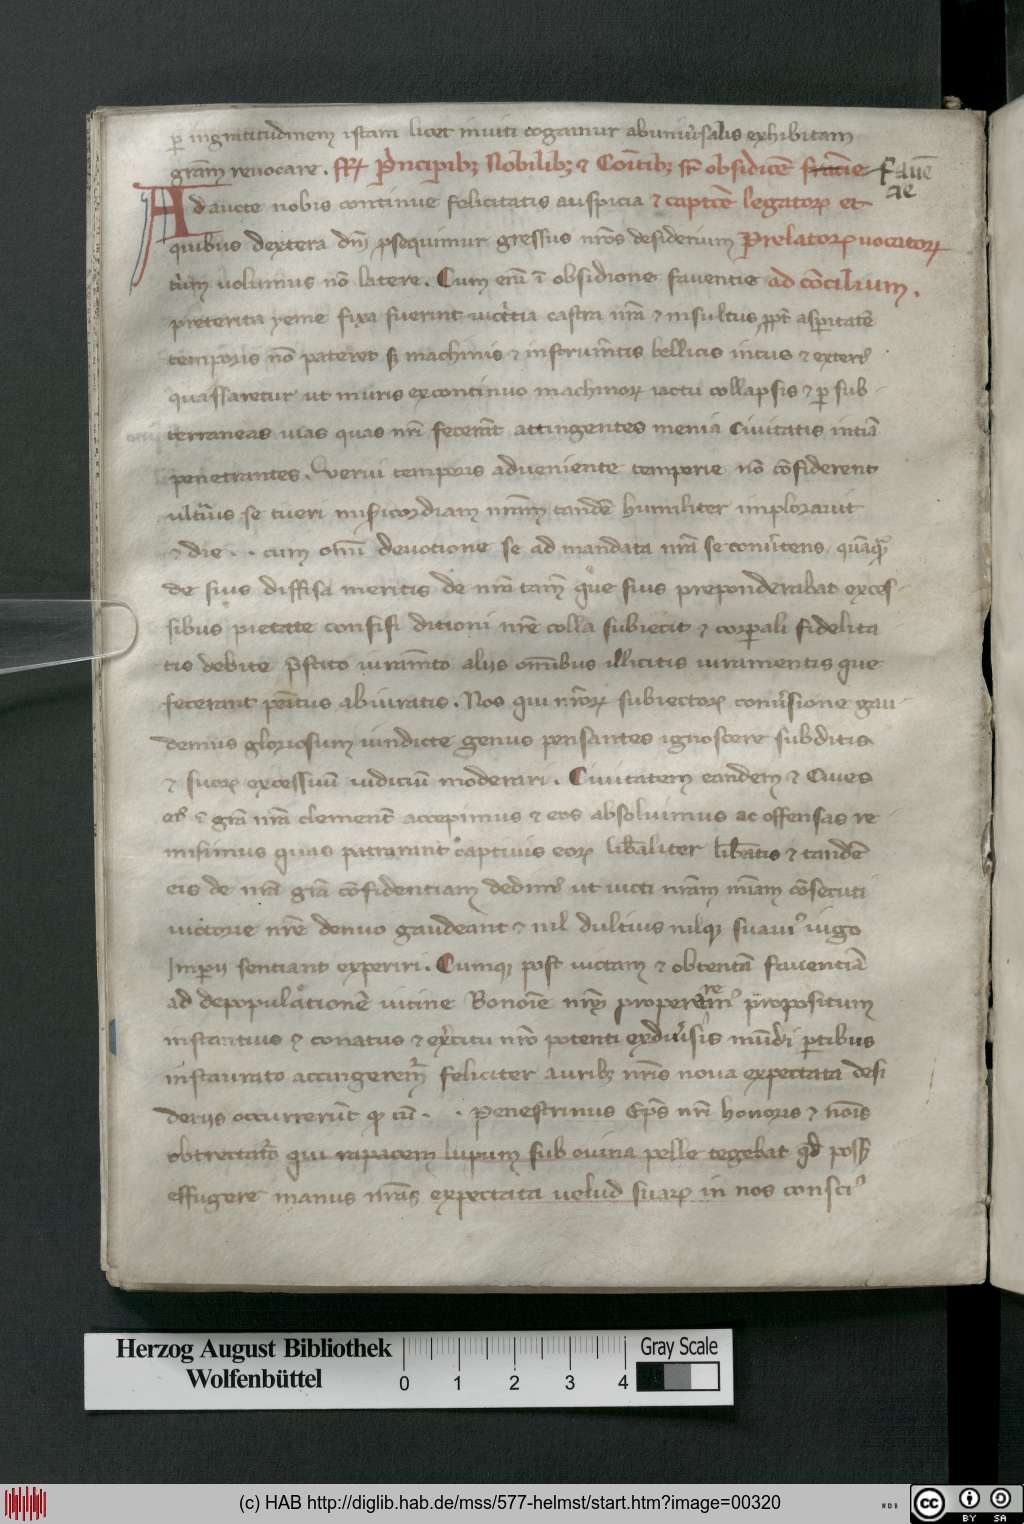 p ingratitudinem istam licet inviti cogamur ab univsalis exhibitam
gram revocare. ffr Pncipibz Nobilibz & Comitibz sr obsidice fracie Faue
cie
Adaucte nobis continue felicitatis auspicia & captce legator et
quibus dextera dni psequimur gressus nros desiderium Prelator vocator
tum volumus no latere. Cum eni i obsidione faventie ad concilium.
preterita yeme fixa fuerint victcia castra nra & insultus ppt aspitate
temporis no pateret s machinis & instrumtis bellicis intus & exteri
quassaretur ut muris ex continuo machinor iactu collapsis & p sub-
terraneas vias quas nri fecerat attingentes menia Civitatis intia
penetrantes. Verui temporis adveniente temperie no cofiderent
ultius se tueri misicordiam nram tande humiliter imploravit
& die . . cum omi devotione se ad mandata nra se convtens
de suis diffisa meritis de nra tam que suis preponderabat exces-
sibus pietate confisi ditioni nre colla subiecit & corpali fidelita
tis debite pstito iuramto aliis omibus illicitis iuramentis que
fecerant penitus abiuratis. Nos qui nror subiector convsione gau-
demus gloriosum vindicte genus pensantes ignoscere subditis
& suor excessuu iudiciu moderari. Civitatem eandem & Cives
ei i gra nra clement accepimus & eos absolvimus ac offensas re
misimus quas patrarant captivis eor libaliter libatis & tande
eis de nra gra cofidentiam dedim ut victi nram miam cosecuti
victorie nre denuo gaudeant & nil dulcius nilq suavi iugo
Impii sentiant experiri. Cumq post victam & obtenta faventia
ad depopulatione vicine Bonoie nrm properem re propositum
instantius & conatus & exitu nro potenti ex divsis mundi ptibus
instaurato accingerem feliciter aurib nris nova expectata desi
deriis occurrerut q cu . . Penestrinus Eps nri honoris & nois
obtrectator qui rapacem lupum sub ovina pelle tegebat qd poss
effugere manus nras expectata velud suar in nos consci
Herzog August Bibliothek
Wolfenbüttel
0 1 2 3 4
Gray Scale
(c) HAB http://diglib.hab.de/mss/577-helmst/start.htm?image=00320
WDB
cc BY SA